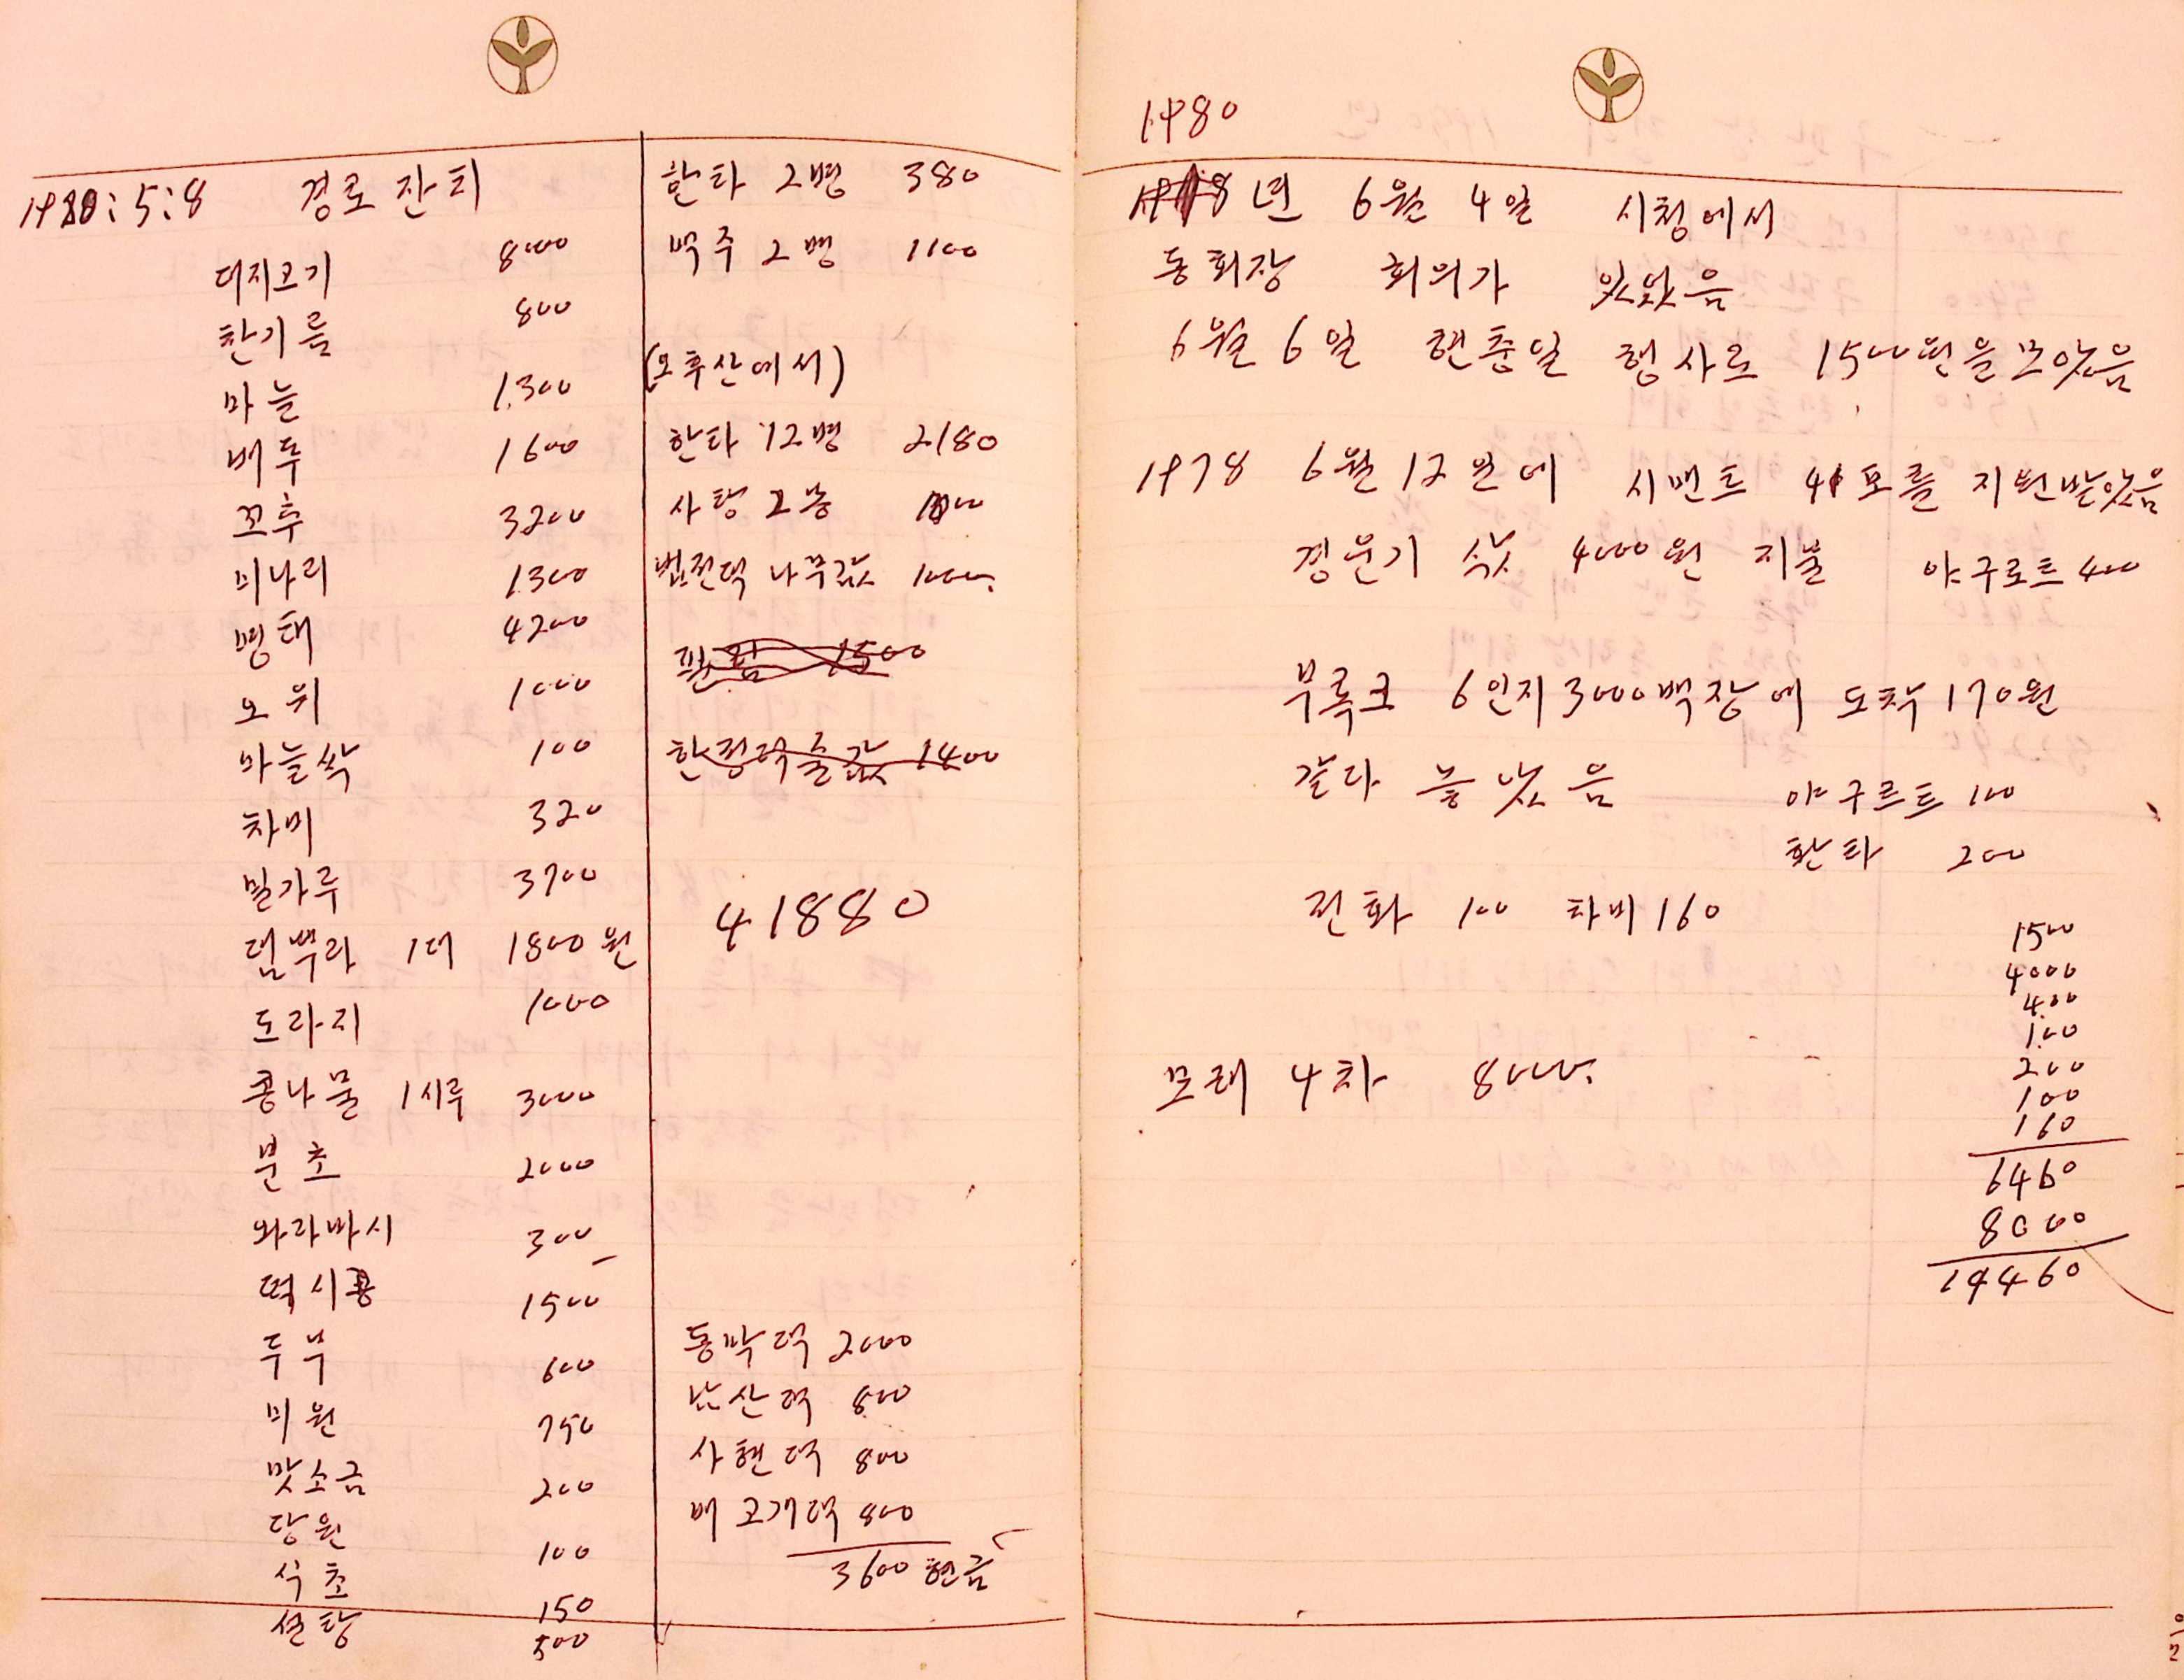 1980:5:8 경로잔티
더지고기 8000
찬기름 800
마늘 1.300
배두 1600
꼬추 3200
미나리 1300
명태 4200
오위 1000
마늘싹 100
차비 320
밀가루 3700
덤뿌라 1더 1800원
도라지 1000
콩나물 1시루 3000
분초 2000
와라바시 300
떡시콩 1500
두부 600
미원 750
맛소금 200
당원 100
식초 150
설탕 500
환타 2병 380
맥주 2병 1100
(오후산에서)
환타 12병 2180
사탕 2봉
법전댁 나무값 1000.
필림 1500
한정댁술값 1400
41880
동막댁 2000
남산댁 800
사현댁 800
배고개댁 800
3600 현금
1980
년 6월 4일 시청에서
동회장 회의가 있았음
6월 6일 현충일 행사로 1500원을모았음
1978 6월 12일에 시맨트 41포를 지원받았음
경운기 삯 4000원 지불 야구로트 400
부록크 6인지 3000백장에 도착 170원
갈다 놓았음 야구르트 100
환타 200
전화 100 차비 160
모래 4차 8000.
1500
4000
400
100
200
100
160
6460
8000
14460